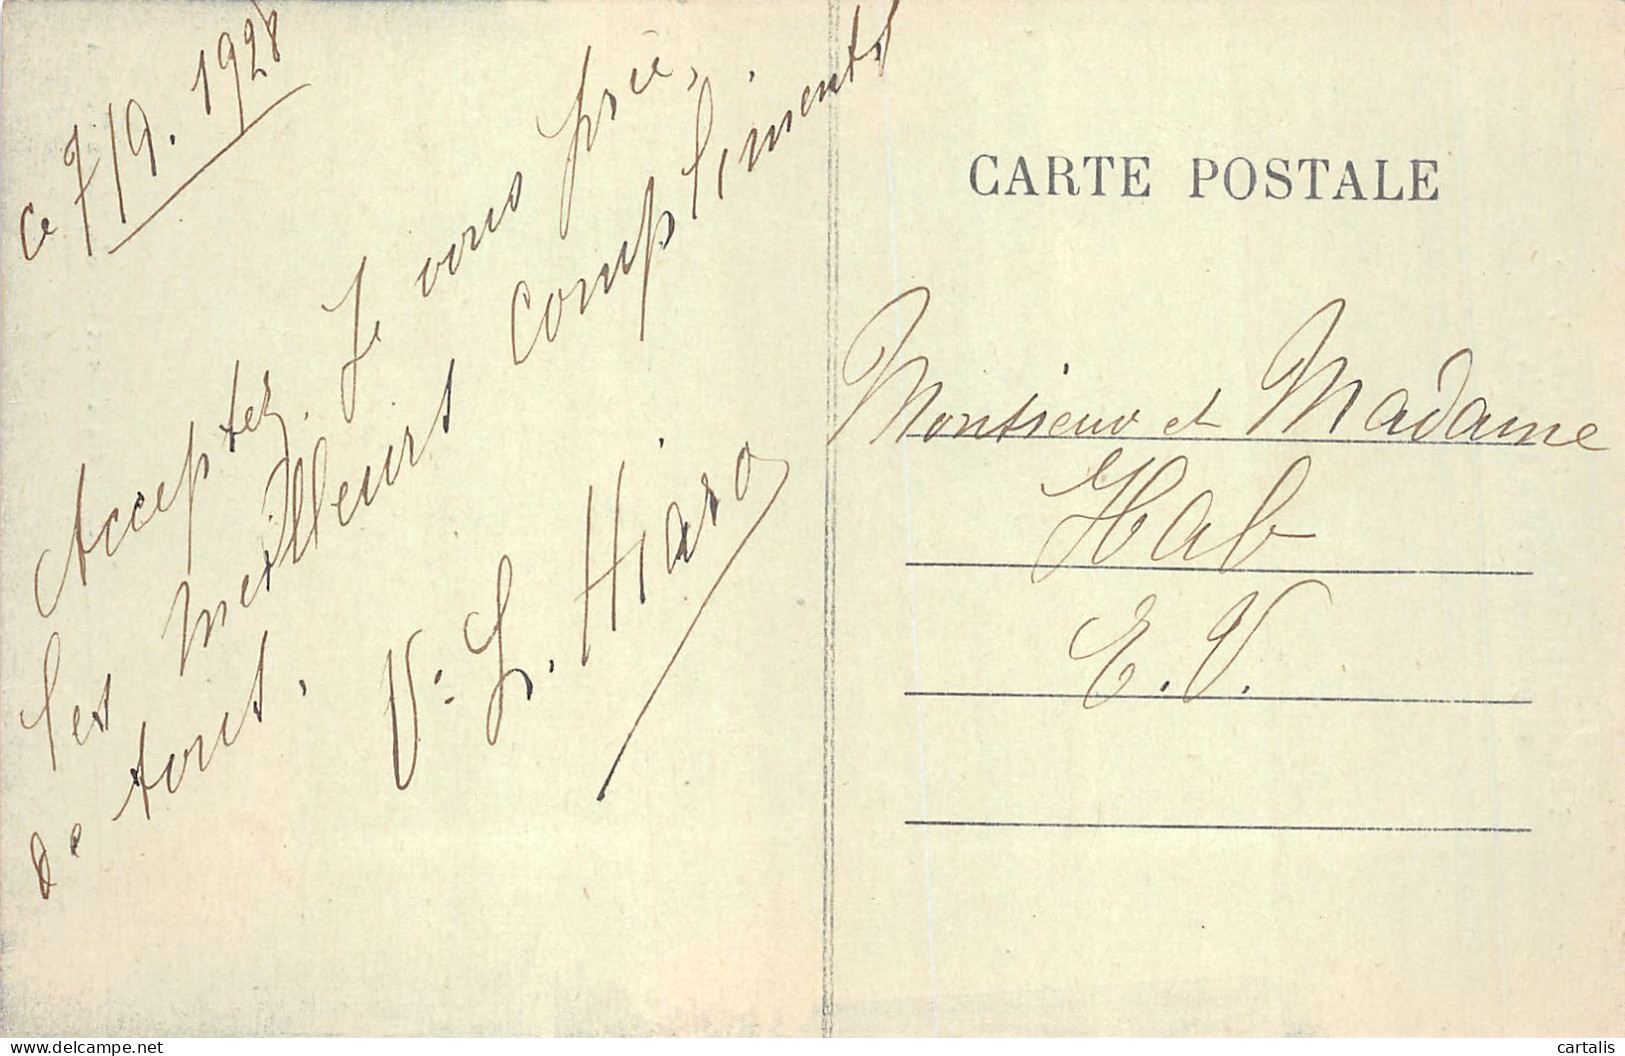 ce 7/9. 1928
Acceptez. Je vous prie,
les meilleurs compliments
de tous.
Vᵉ L. Hiaro
CARTE POSTALE
Monsieur et Madame
Hab
E.V.
www.delcampe.net
cartalis